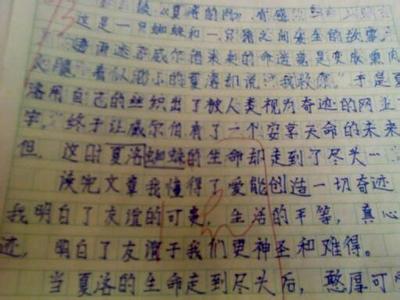 读《夏洛的网》有感
这是一只蜘蛛和一只猪之间发生的故事。
威尔伯未来的命运就是变成熏肉
火腿，看似渺小的夏洛却说“我救你。”于是夏
洛用自己的丝织出了被人类视为奇迹的网上文
字，终于让威尔伯有了一个安享天命的未来
但，这时夏洛蜘蛛的生命却走到了尽头…
读完文章我懂得了爱能创造一切奇迹
我明白了友谊的可贵，生活的平等，真心
迹，明白了友谊于我们更神圣和难得。
当夏洛的生命走到尽头后，憨厚可